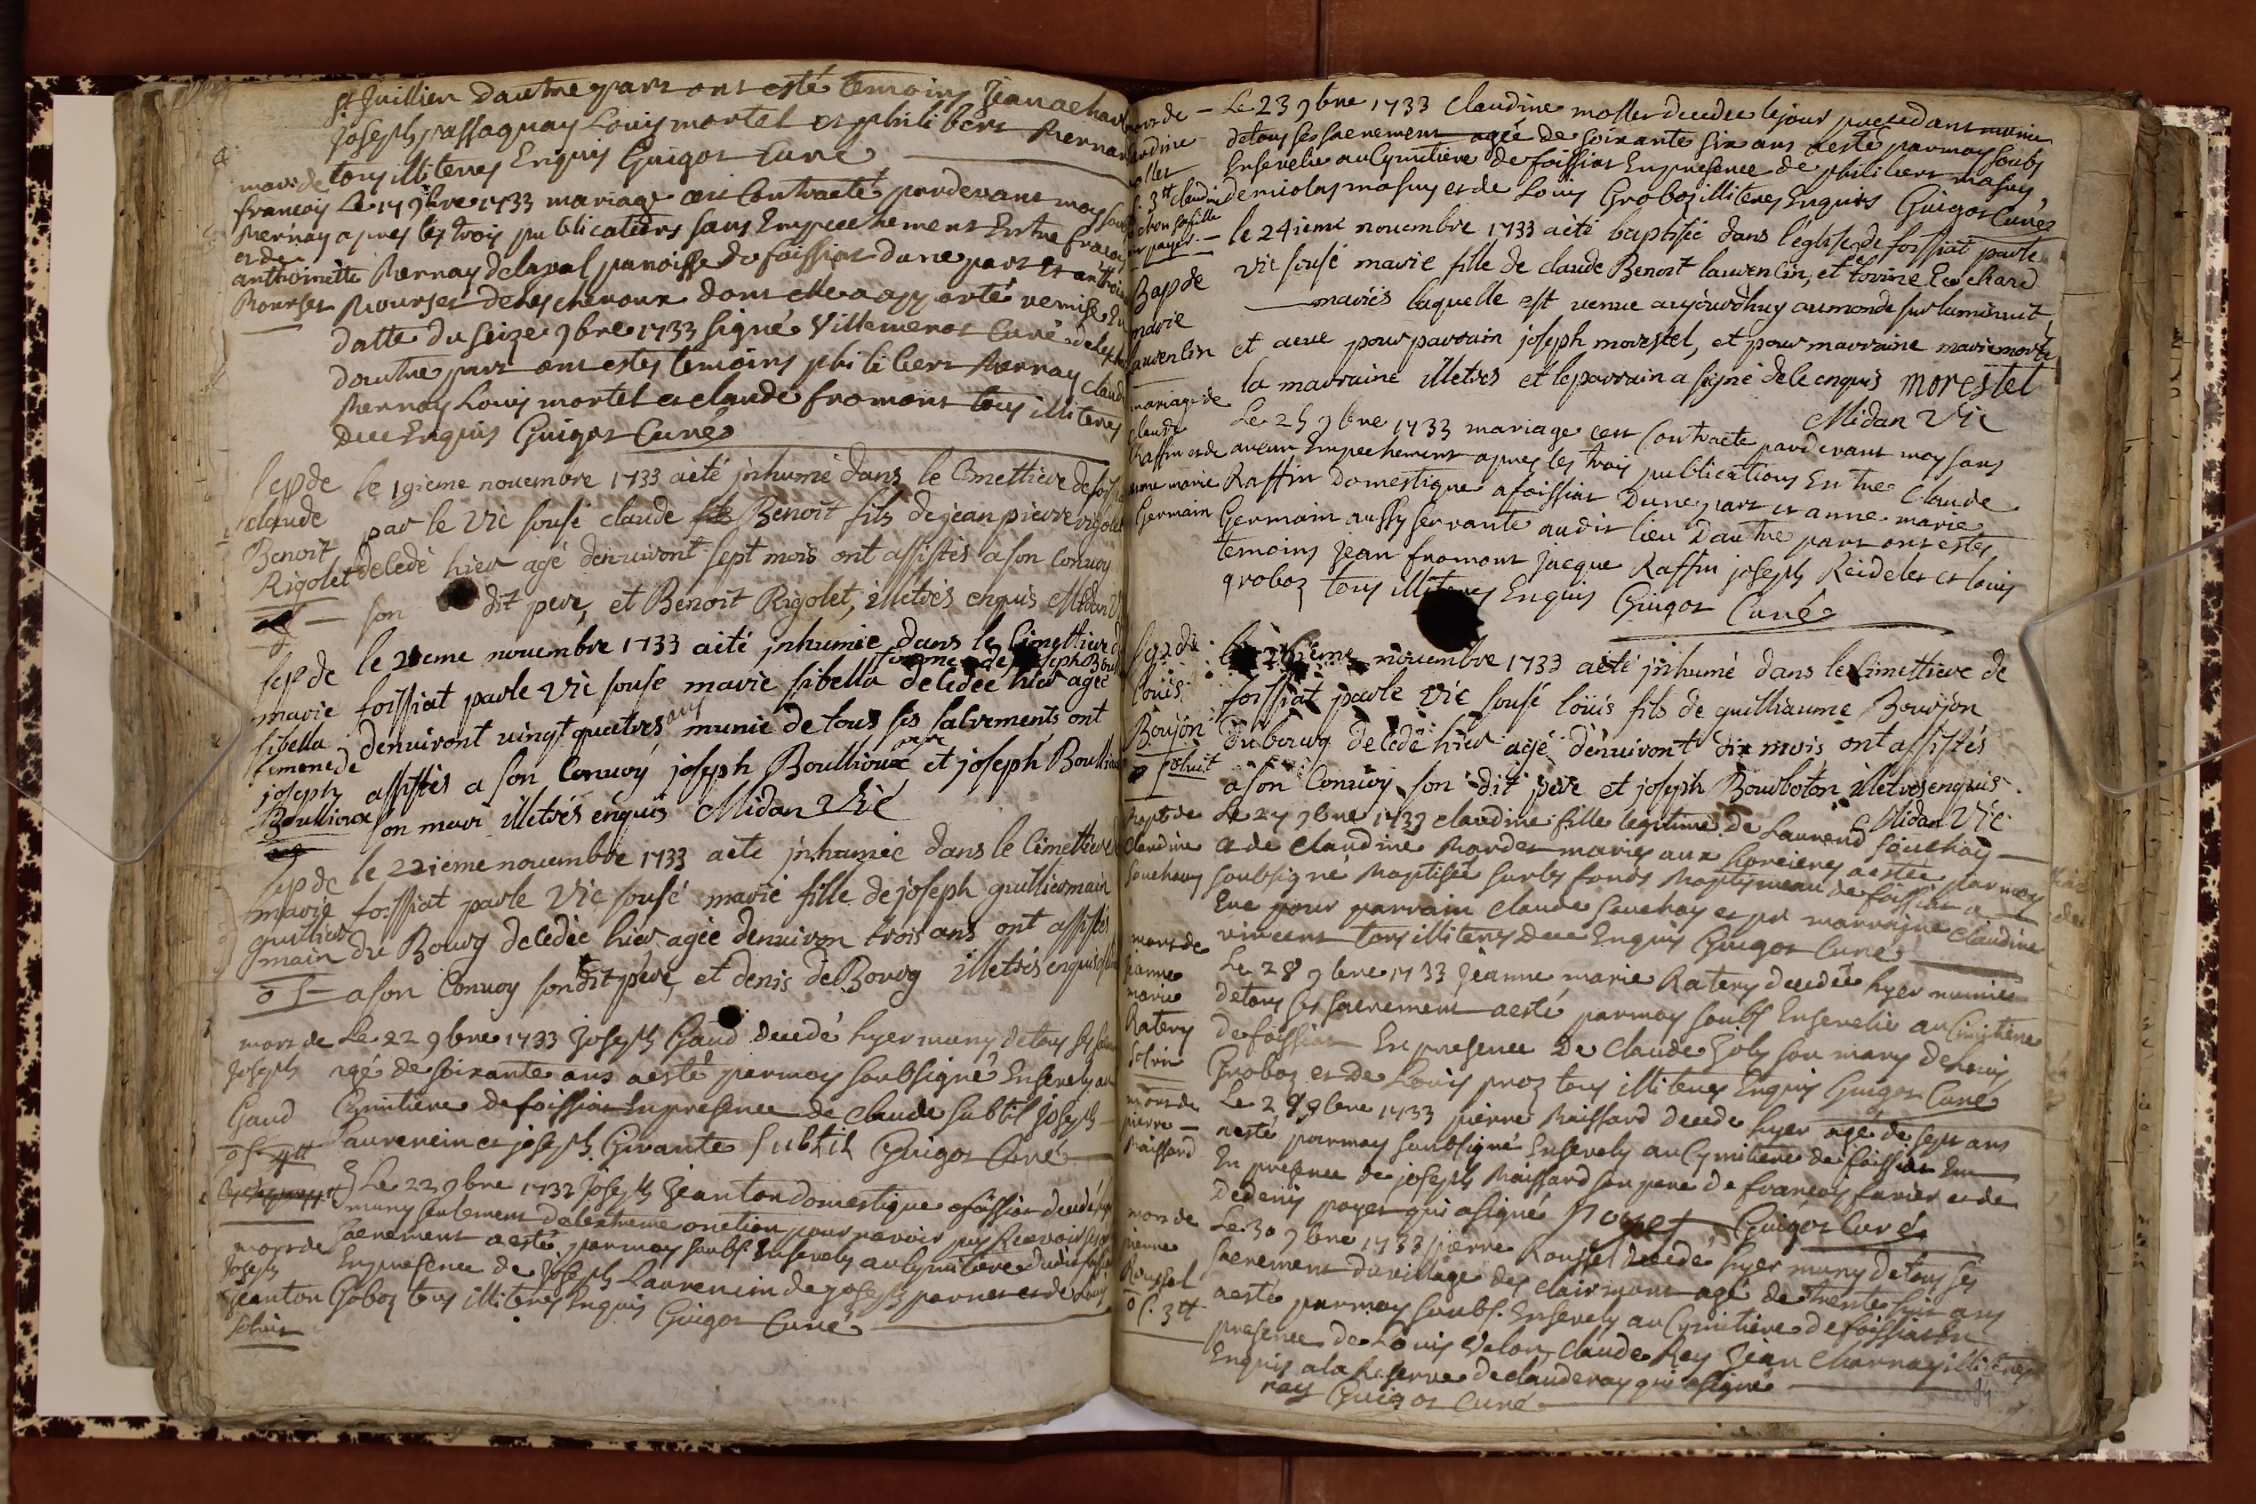 St Juillien dautre part ont esté temoins Jean
Joseph passaquay Louis mortel et philibert Mernay
tous illiteres Enquis Guigot Curé
mar: de
francois
Mernay
et de
anthoinette
Mourset
Le 17 9bre 1733 mariage cest Contracté pardevant moy
apres les trois publications sans Empechement Entre
Mernay delaval paroisse de foissiat dune part et
Mourset dont elle a apporté remise du
datte du seize 9bre 1733 signé Villemenot Curé
dautre part ont estes temoins philibert Mernay claude
Mernay Louis mortel et claude fromont tous illiteres
Enquis Guigot Curé
sep de
claude
Benoit
Rigolet
le 19ieme novembre 1733 a été jnhumé dans le Cimettiere de
par le Vic sousé claude Benoit fils de jean pierre rigolet
decedé hier agé denviront sept mois ont assistés a son Convoy
son dit pere, et Benoit Rigolet, illetrés enquis Midan
sep de
marie
sibella
femme de
joseph
Boullioux
le 20eme novembre 1733 a eté jnhumée dans le Cimettiere
femme de joseph
foissiat par le Vic sousé marie sibella decedée hier agée
denviront vingt quatres ans munie de tous ses sacrements ont
assistés a son Convoy joseph Boullioux et joseph
son mari illetrés enquis Midan Vic
sep de
marie
guillier
main
le 22ieme novembre 1733 a eté jnhumée dans le Cimettiere
foissiat par le Vic sousé marie fille de joseph guilliermain
du Bourg decedée hier agée denviron trois ans ont assistés
a son Convoy son dit pere, et denis de Bourg illetrés enquis
mort de
Joseph
Gaud
Le 22 9bre 1733 Joseph Gaud decedé hyer muny de tous ses
agé de soixante ans a esté par moy soubsigné Ensevely au
Cymitiere de foissiat En presence de claude subtil Joseph
Laurencin et joseph Girante Subtil Guigot Curé
mort de
Joseph
Jeanton
Le 23 9bre 1733 Joseph Jeanton domestique a foissiat decedé
muny seulement de lextreme onction pour navoir pu Recevoir
sacrement a esté par moy soubs. Ensevely au Cymitiere dudit
En presence de Joseph Laurencin de joseph et de Louis
Goboz tous illiteres Enquis Guigot Curé
mort de
Le 23 9bre 1733 Claudine mollet decedee le jour precedant munie
de tous ses sacrement agée de soixante six ans a esté par moy soubs
Ensevelie au Cymitiere de foissiat En presence de philibert masuy,
de nicolas masuy et de Louis Groboz illiteres Enquis Guigot Curé
Bap de
marie
laurencin
le 24ieme novembre 1733 a eté baptisée dans l'églisse de foissiat par le
Vic sousé marie fille de claude Benoit laurencin, et
mariés laquelle est venue aujourdhuy au monde sur la minuit,
et a eue pour parrain joseph morestel, et pour marraine marie
la marraine illetrés et le parrain a signé de ce enquis morestel
Midan Vic
mariage de
claude
Raffin et de
anne marie
Germain
Le 25 9bre 1733 mariage cest Contracté pardevant moy sans
aucun Empechement apres les trois publications Entre Claude
Raffin domestique a foissiat dune part et anne marie
Germain aussy servante audit lieu dautre part ont estes
temoins jean fromont jacque Raffin joseph Reidelet et louis
groboz tous illiteres Enquis Guigot Curé
sep de
louis
Boujon
le 26ieme novembre 1733 a été jnhumé dans le Cimettiere de
foissiat par le Vic sousé loüis fils de guilliaume Bourjon
du bourg decedé hier agé denviront dix mois ont assistés
a son Convoy son dit pere et joseph Bourboton illetrés enquis.
Midan Vic
bapt de
claudine
Souchay
Le 27 9bre 1733 claudine fille legitime de Laurend Souchay
et de Claudine mariés aux a estée par moy
soubsigné Baptisée sur les fonds Baptismeau de foissiat a
Eue pour parrain claude Souchay et pr marraine Claudine
vincent tous illiteres Enquis Guigot Curé
mort de
jeanne
marie
Ratery
Le 28 9bre 1733 Jeanne marie Ratery decedée hyer munie
de tous ses sacrement a esté par moy soubs Ensevelie au Cimitiere
de foissiat En presence de Claude Joly son mary de Louis
Groboz et de Louis proz tous illiteres Enquis Guigot Curé
mort de
pierre
Raissard
Le 29 9bre 1733 pierre Raissard decedé hyer agé de sept ans
a esté par moy soubsigné Ensevely au Cymitiere de foissiat
En presence de joseph Raissard son pere de francois furier et de
De denis poyet qui a signé Poyet Guigot Curé
mort de
pierre
Roussel
Le 30 9bre 1733 pierre Roussel decedé hyer muny de tous ses
sacrement du village des clairmont agé de trente huit ans
a esté par moy soubs. Ensevely au Cymitiere de foissiat En
presence de Louis Velon, Claude Rey Jean Charnay illiteres
Enquis a la Reserve de claude ray qui a signé
ray Guigot Curé